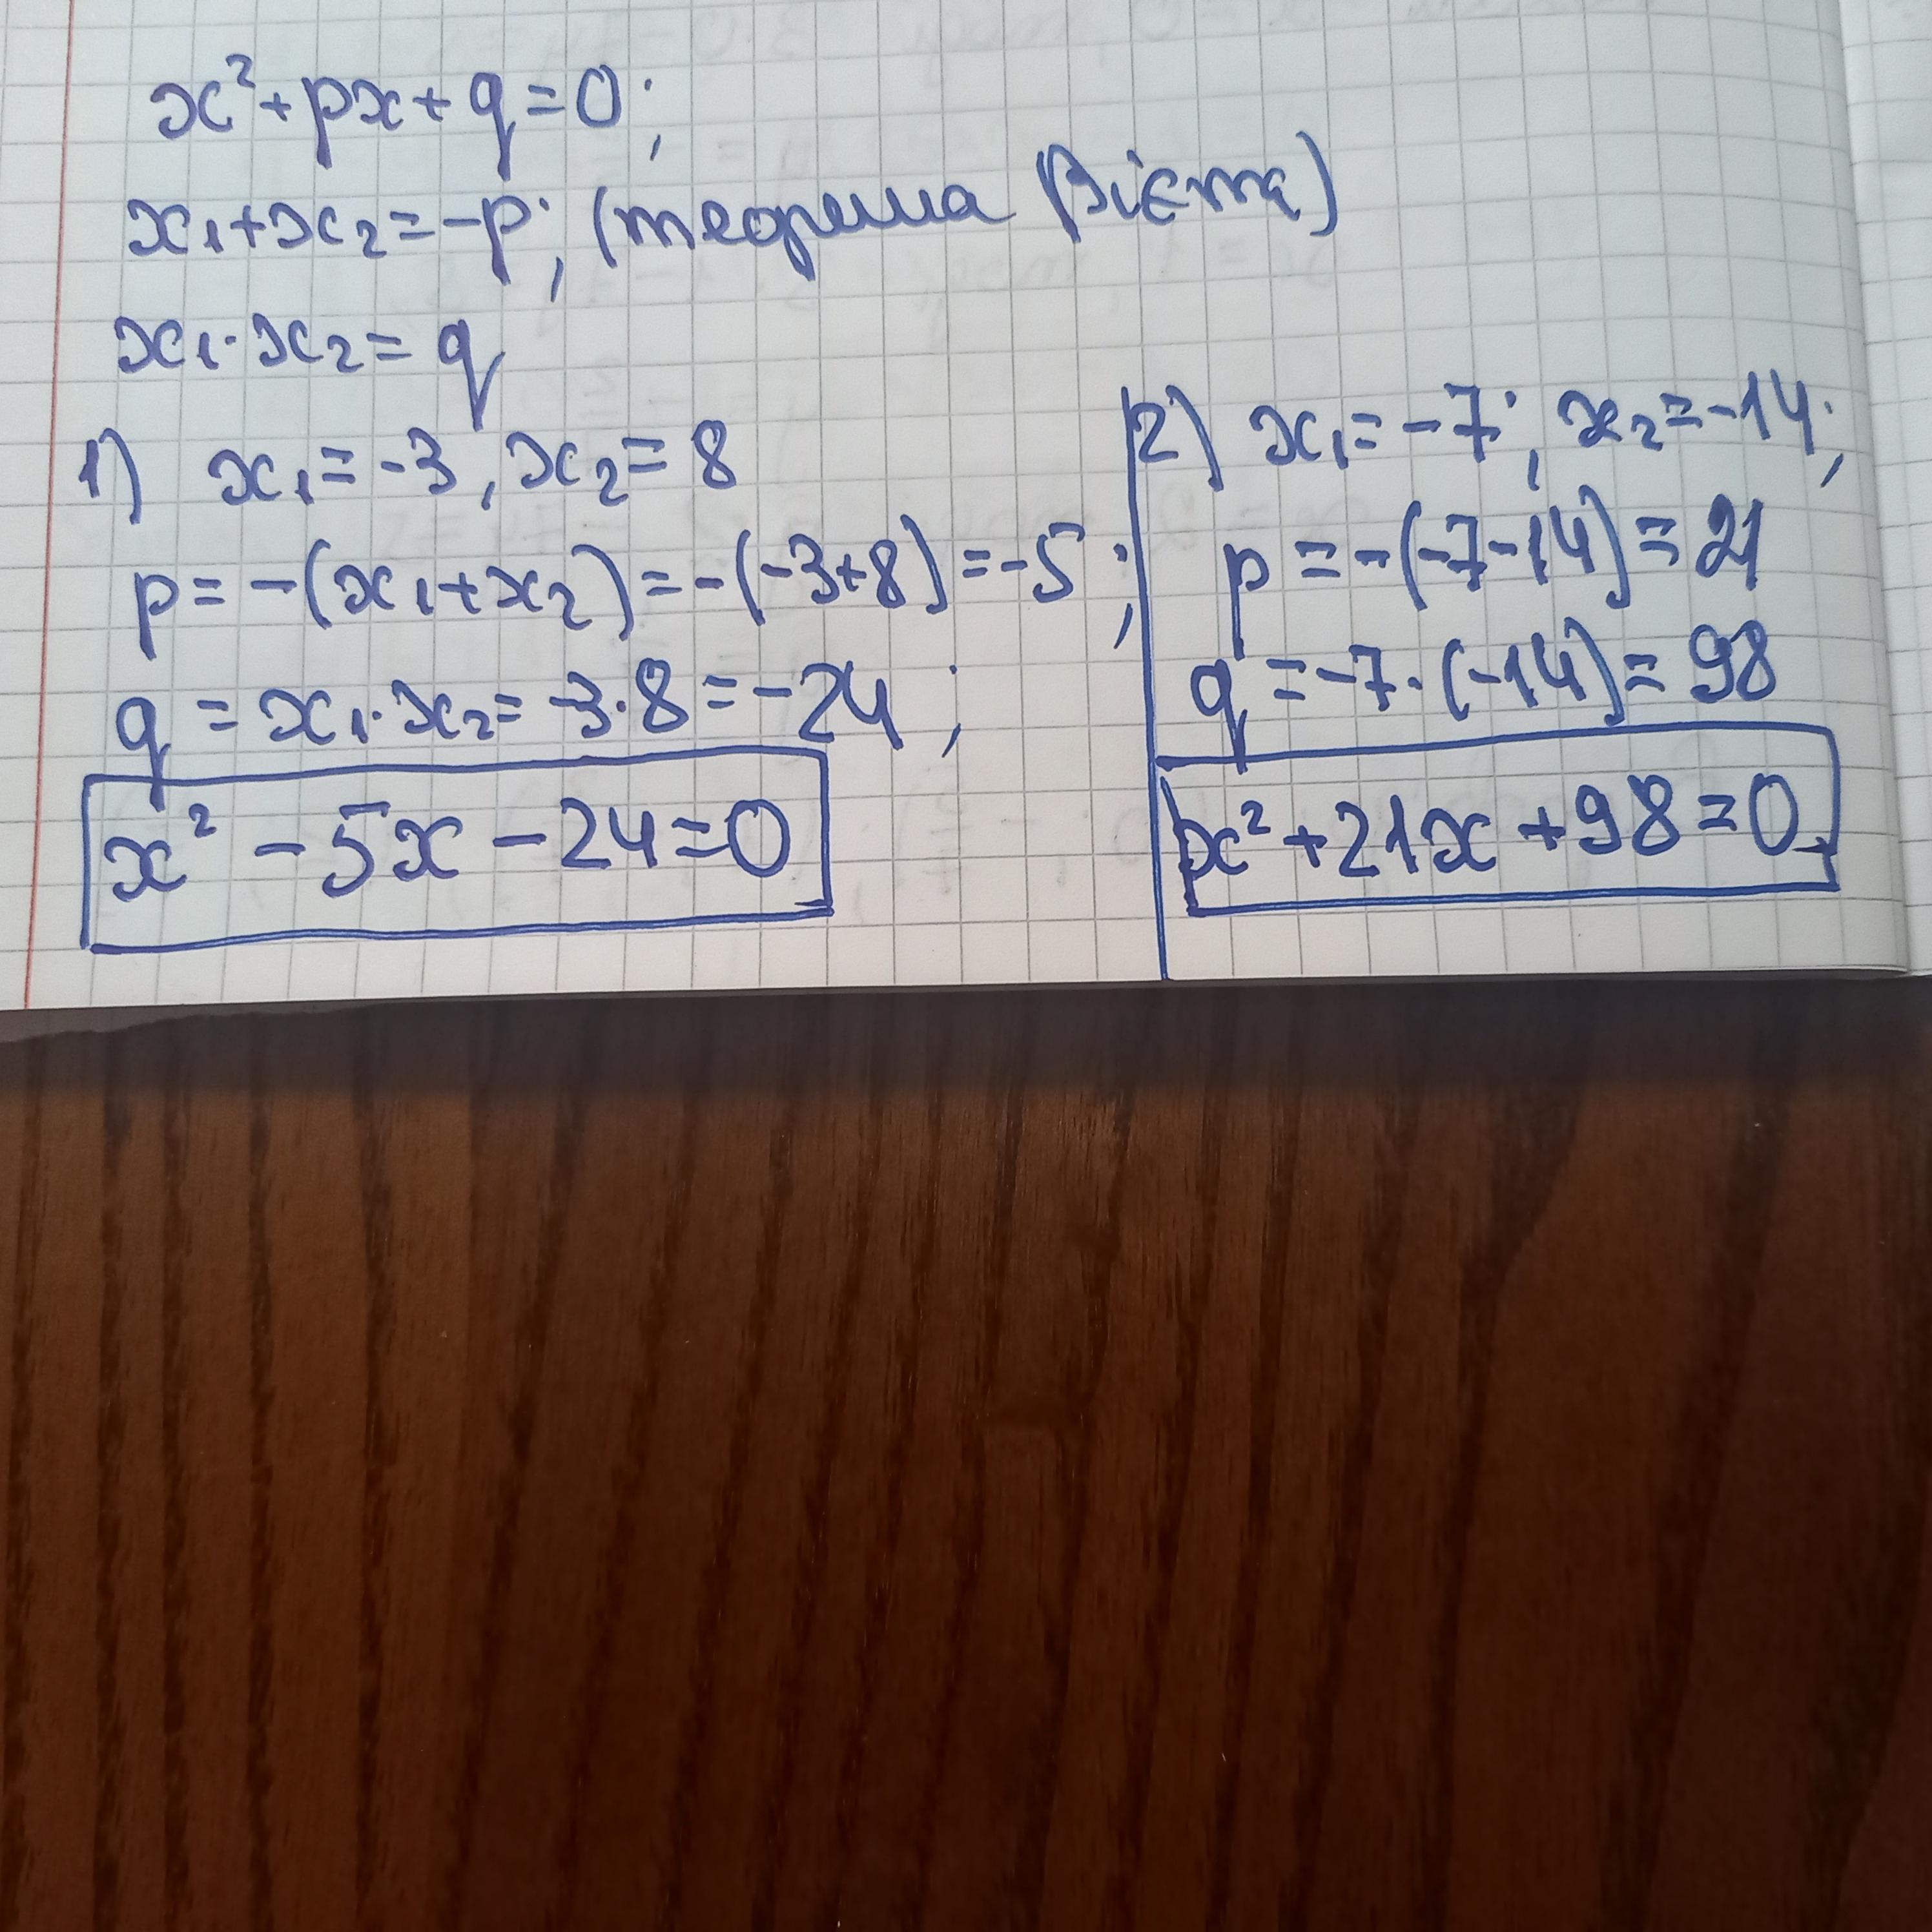 x² + px + q = 0;
x₁ + x₂ = -p; (теорема Вієта)
x₁ · x₂ = q
1) x₁ = -3, x₂ = 8
p = -(x₁ + x₂) = -(-3+8) = -5;
q = x₁ · x₂ = -3 · 8 = -24;
x² - 5x - 24 = 0
2) x₁ = -7; x₂ = -14;
p = -(-7-14) = 21
q = -7 · (-14) = 98
x² + 21x + 98 = 0